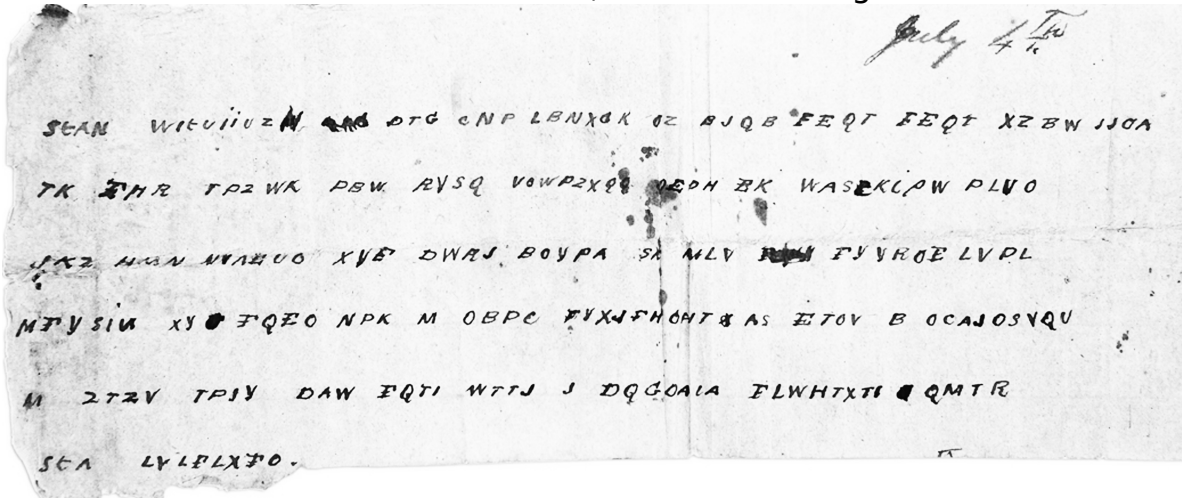 July 4th
SEAN WIEUIIUZH DTG CNP LBNXGK OZ BJQB FEQT FEQT XZBW JJOA
TK FHR TPZWK PBW RYSQ VOWPZXGG OEPH EK WASFKIPW PLVO
JKZ HMN NVAEUO XYE DWRJ BOYPA SX MLV FYYRDE LVPL
MFYSIN XY FQEO NPK M OBPC FYXJFHOHT AS ETOV B OCAJDSVQU
M ZTZV TPJY DAW FQTI WTTJ J DQGOAIA FLWHTXTI QMTR
SEA LVLFLXFO.